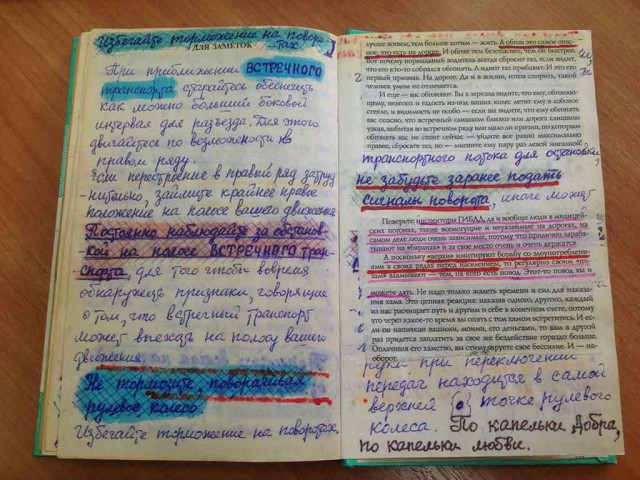 Избегайте торможение на поворо-
тах
ДЛЯ ЗАМЕТОК
При приближении ВСТРЕЧНОГО
транспорта старайтесь обеспечить
как можно больший боковой
интервал для разъезда. Для этого
двигайтесь по возможности в
правом ряду.
Если перестроение в правый ряд затруд
-нительно, займите крайнее правое
положение на полосе вашего движения
Постоянно наблюдайте за обстанов-
кой на полосе ВСТРЕЧНОГО тран-
спорта, для того чтобы вовремя
обнаружить признаки, говорящие
о том, что встречный транспорт
может выехать на полосу вашего
движения.
Не тормозите, поворачивая
рулевое колесо
Избегайте торможение на поворотах.
лучше живем, тем больше хотим — жить. А обгон это самое опас-
ное, что есть на дороге. И обгон тем безопаснее, чем он быстрее.
вот почему нормальный водитель всегда сбросит газ, если видит,
что его кто-то собрался обогнать. А идиот газ прибавит. И это его
первый признак. На дороге. Да и в жизни, готов спорить, такой
человек умом не отличается.
И еще — вас обгоняют. Вы в зеркала видите, что ему, обгоняю-
щему, немного и гадость из-под ваших колес летит ему в лобовое
стекло, и видимость не особо — если вы видите, что ему обогнать
вас опасно, что встречный слишком быстро или дорога слишком
узкая, выбегая во встречном ряду или мало ли причин, по которым
обгонять вас не стоит сейчас — уйдите все равно максимально
правее, сбросьте газ, но — мигните ему пару раз левой мигалкой.
транспортного потока для остановки,
не забудьте заранее подать
сигналы поворота, иначе может
Поверьте инспекторы ГИБДД, да и вообще люди в милицей-
ских погонах, такие всемогущие и неуязвимые на дорогах, на
самом деле люди очень зависимые, потому что прилично зараба-
тывают на «баранах» и за свое место очень и очень держатся.
А поскольку «верхи» имитируют борьбу со злоупотреблени-
ями в своих рядах перед населением, то регулярно своим «ни-
зам» вдалбливают — тем, на кого есть повод. Этот-то повод вы и
можете дать. Не надо только жалеть времени и сил для наказа-
ния хама. Это цепная реакция: наказав одного, другого, каждый
из нас расчищает путь и другим и себе в конечном счете, потому
что через какое-то время вы опять с тем хамом встретитесь. И ес-
ли он напичкан вашими, моими, его деньгами, то вам в другой
раз придется заплатить за свое же бездействие гораздо больше.
Оплачивая его хамство, вы оплачиваете свое бессилие. И — на-
оборот.
рука при переключении
передач находится в самой
верхней точке рулевого
колеса. По капельки Добра,
по капельки любви.